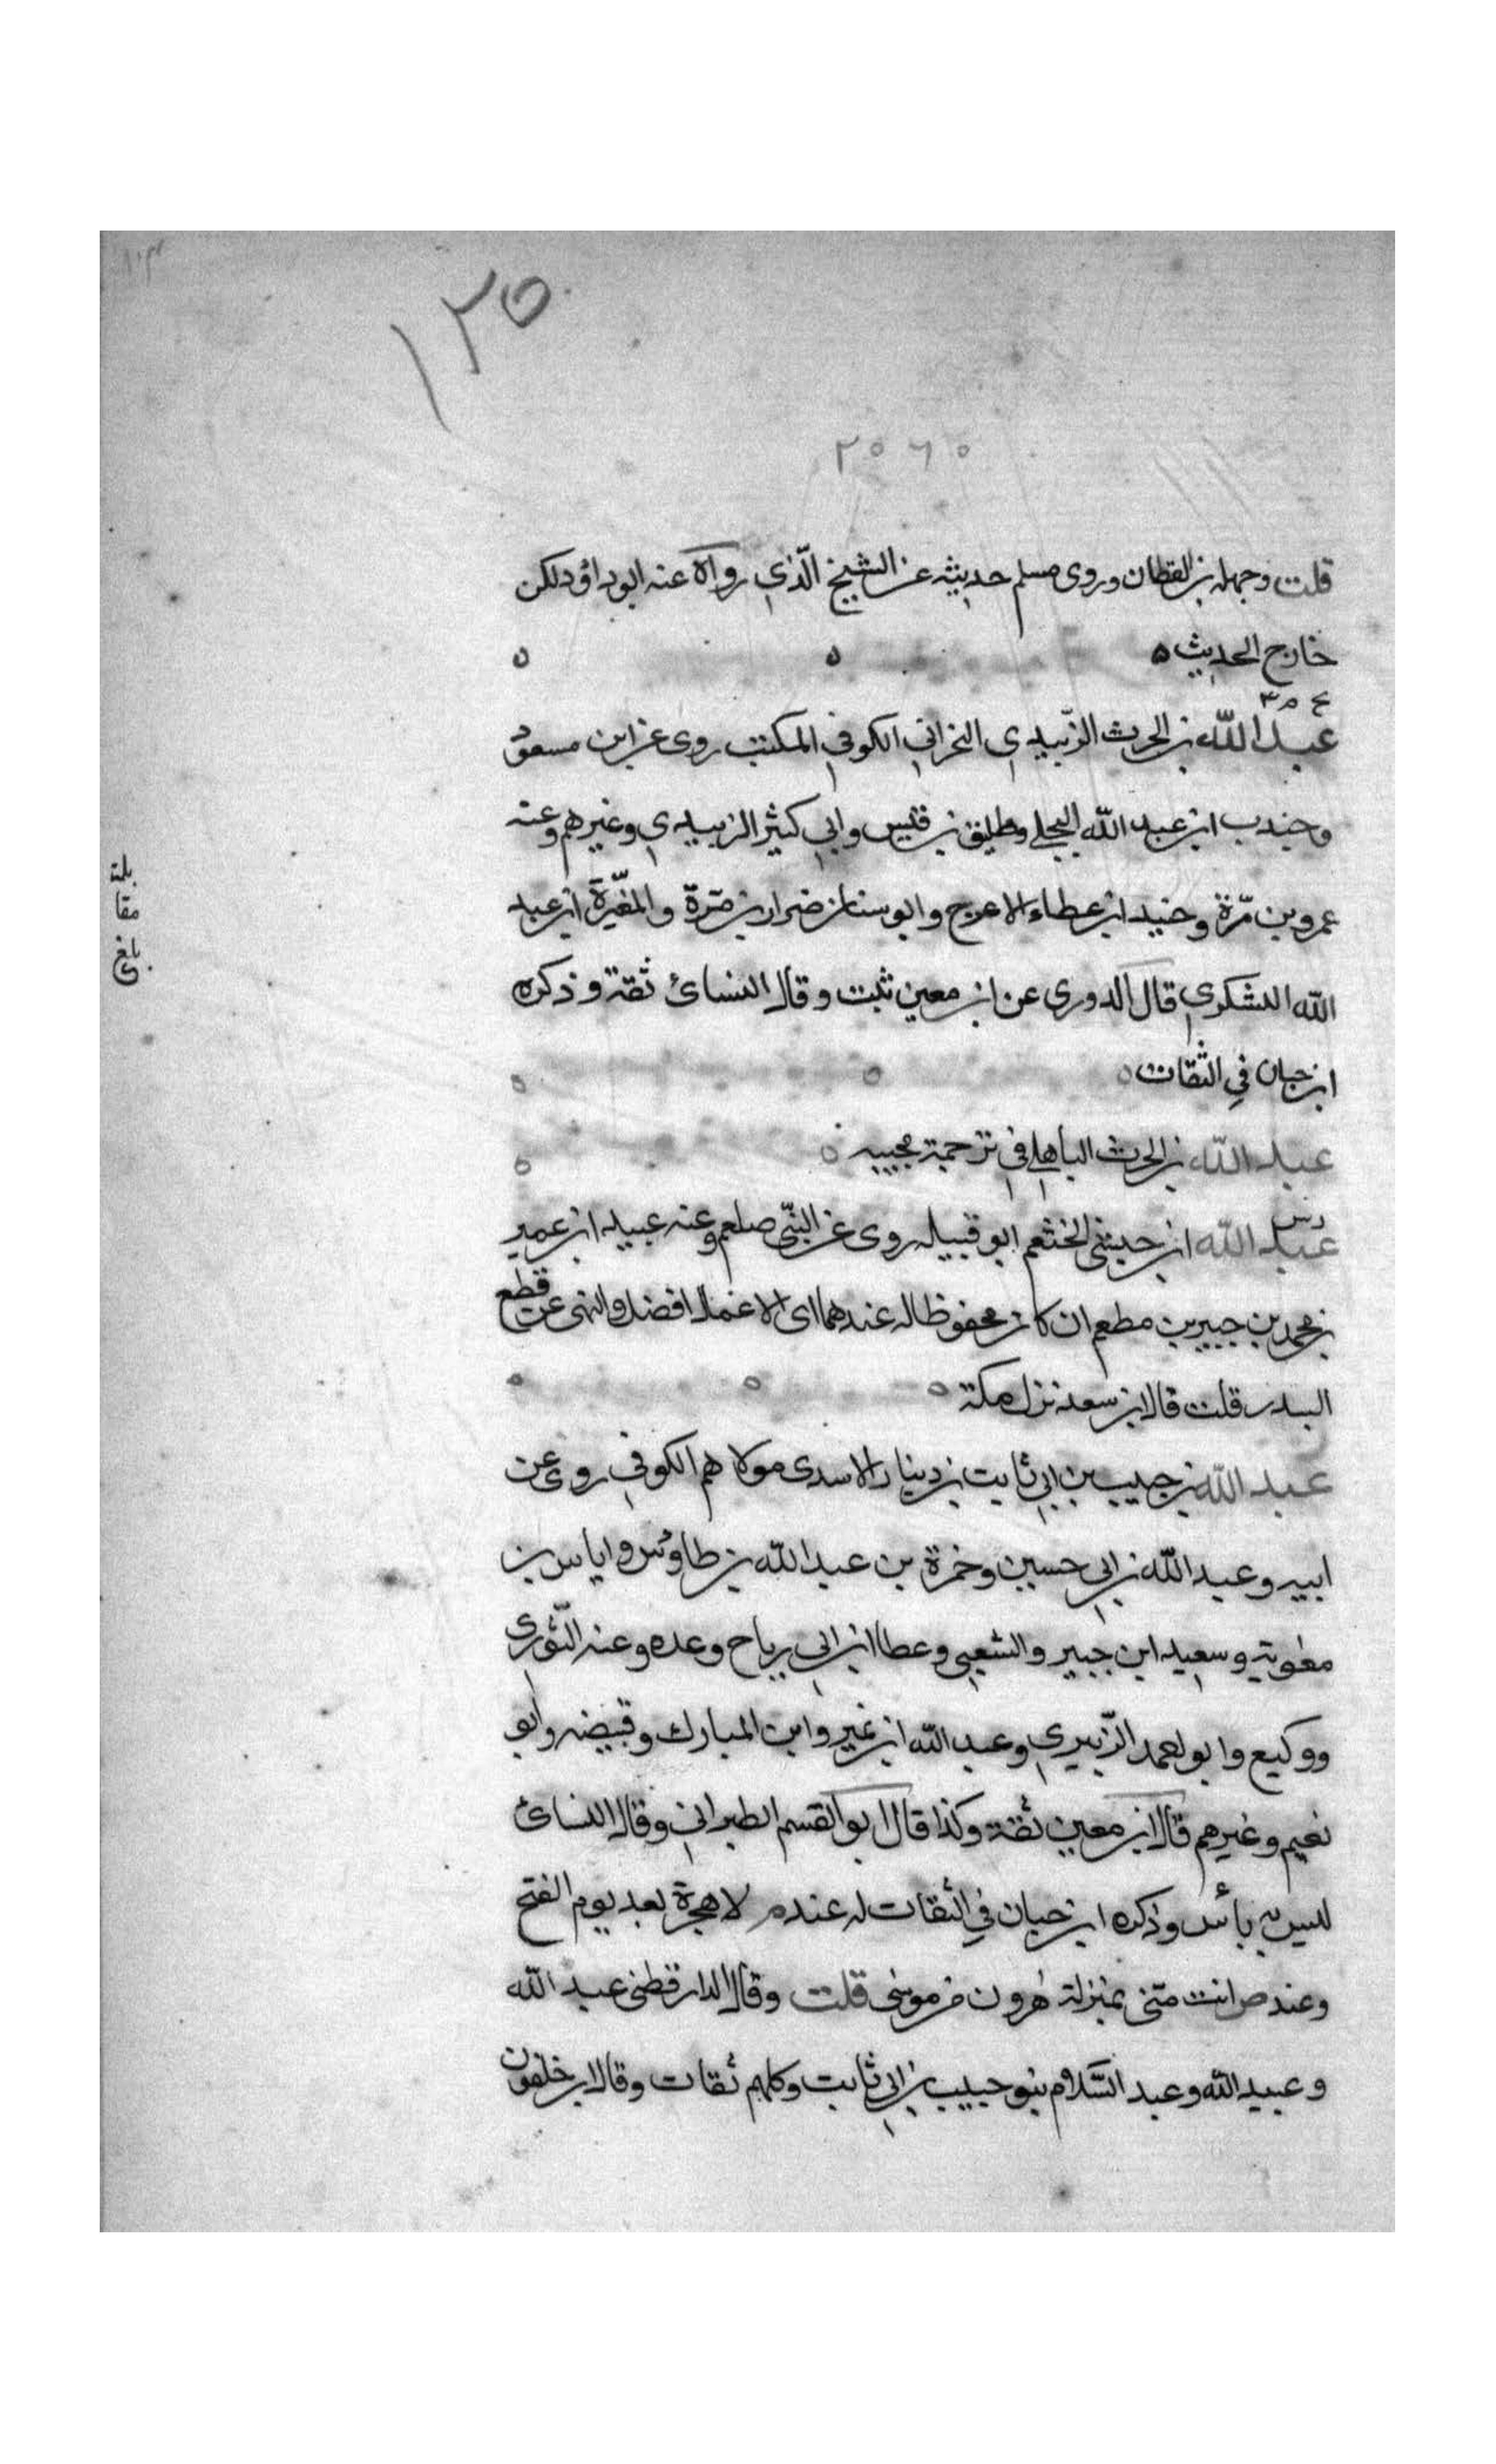 ١٢٥
٢٠٦٠
قلت وجهله بن القطان وروى مسلم حديثه عن الشيخ الّذي رواه عنه ابو داود لكن
خارج الحديث ه
عبد الله بن الحرث الزّبيدي النجراني الكوفي المكتب روى عن ابن مسعود
وجندب ابن عبد الله البجلي وطليق بن قيس وابي كثير الزبيدي وغيرهم وعنه
عمرو بن مّرة وحنيد ابن عطاء الاعرج وابو سنان ضرار بن مّرة والمغّيرة ابن عبد
الله اليشكري قال الدوري عن ابن معين ثبت وقال النسائ ثقة وذكره
ابن حبان في الثقات
عبد الله بن الحرث الباهلي في ترجمة مجيبه
عبد الله ابن حبشي الخثعم ابو قبيله روى عن النبّي صلعم وعنه عبيد ابن عمير
بن محمد بن جبير بن مطعم ان كان محفوظا له عندهما اي الاعمال افضل والنهى عن قطع
السدر قلت قال ابن سعد نزل مكة
عبد الله بن حبيب بن ابي ثابت بن دينار الاسدى مولاهم الكوفي روى عن
ابيه وعبد الله بن ابي حسين وحمزة بن عبد الله بن طاوس واياس بن
معوية وسعيد ابن جبير والشعبي وعطا ابن ابي رباح وعده وعنه الثّوري
ووكيع وابو احمد الزّبيري وعبد الله ابن نمير وابن المبارك وقبيضه وابو
نعيم وغيرهم قال ابن معين ثقة وكذا قال ابو القسم الطبراني وقال النسائ
ليس به بأس وذكره ابن حبان في الثقات له عند م لا هجرة بعد يوم الفتح
وعند ص انت متى بمنزلة هرون من موسى قلت وقال الدارقطني عبد الله
وعبيد الله وعبد السّلام بنو حبيب بن ابي ثابت وكلهم ثقات وقال ابن خلفون
بلغ
مقا
بلة